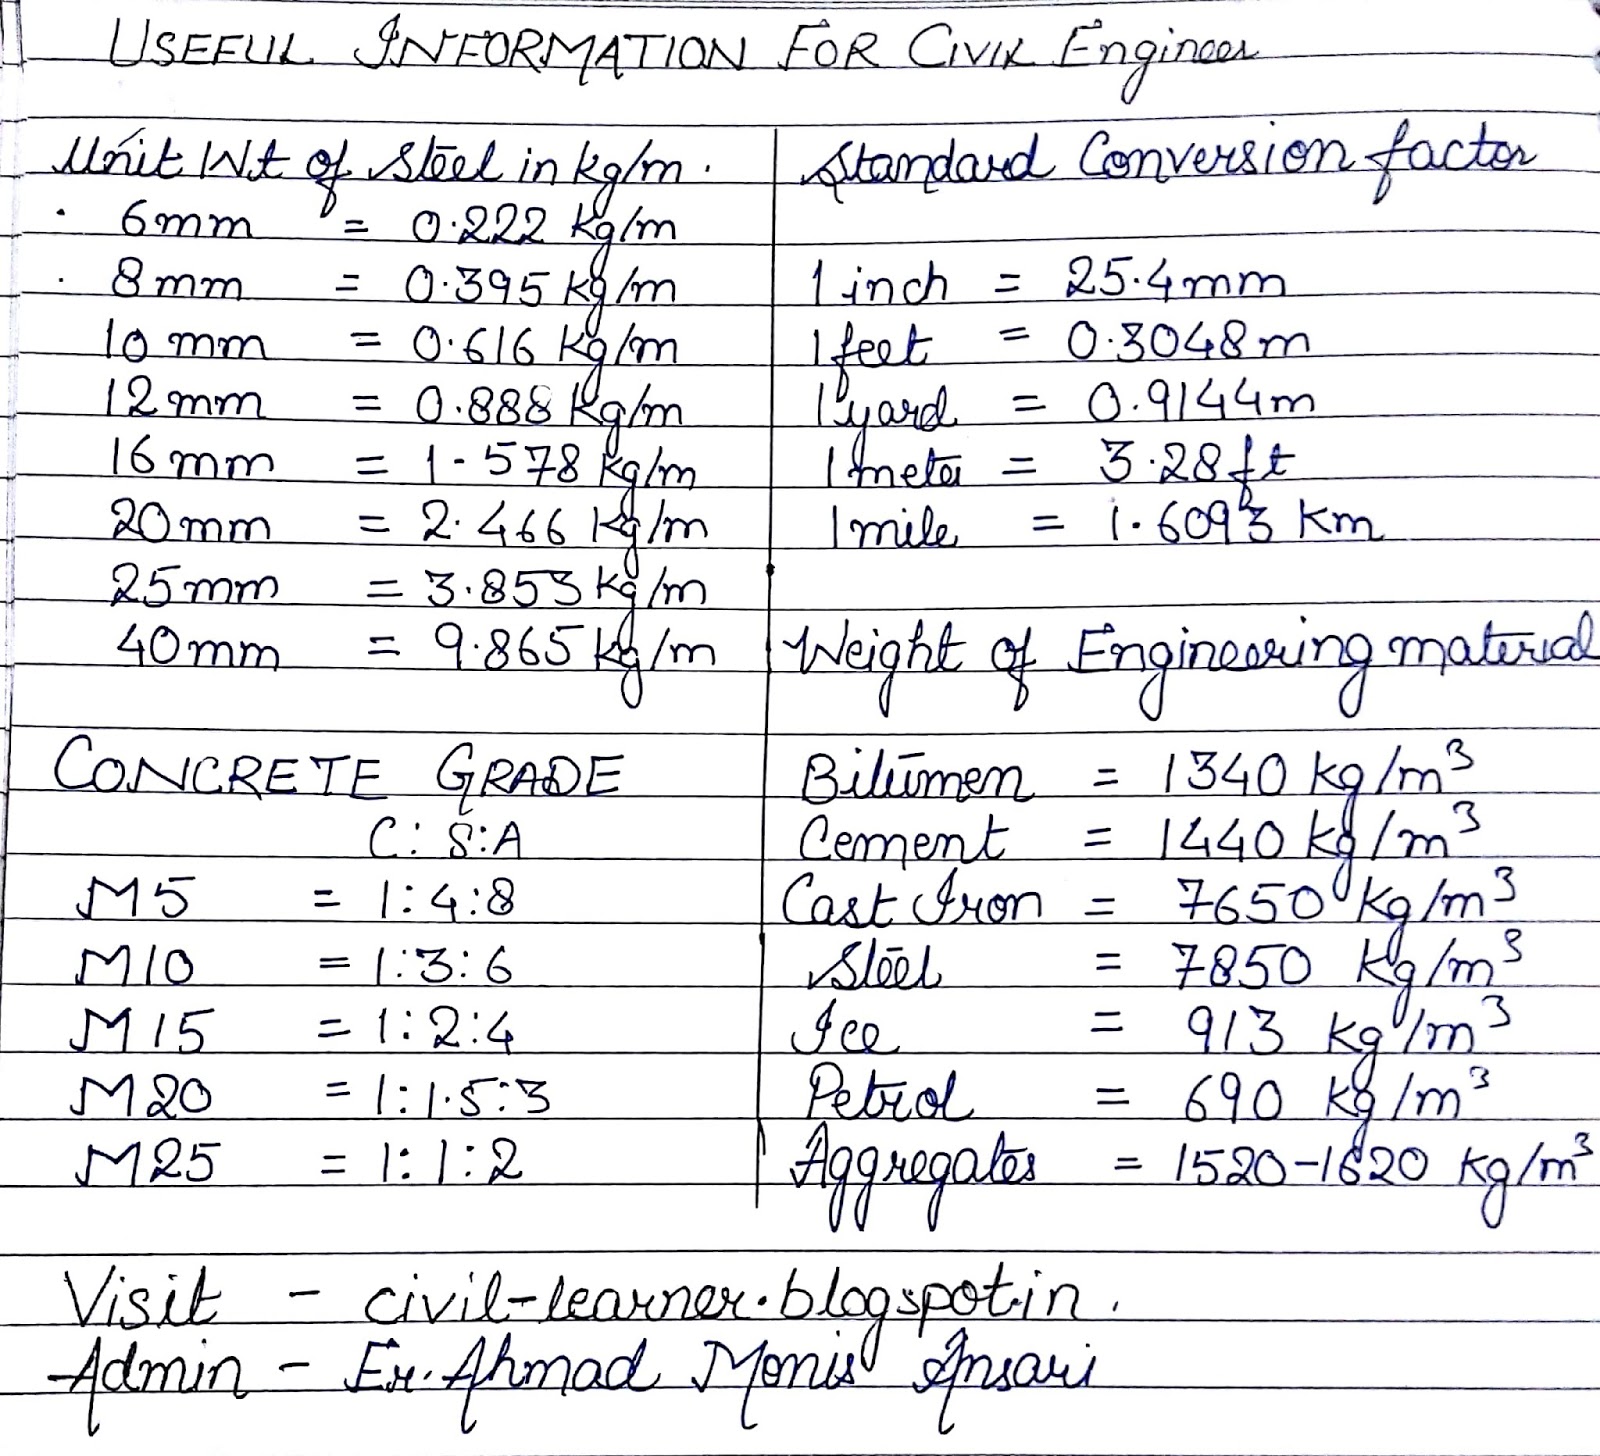 USEFUL INFORMATION FOR CIVIL Engineer
Unit Wt of Steel in kg/m.
6mm = 0.222 kg/m
8mm = 0.395 kg/m
10 mm = 0.616 kg/m
12mm = 0.888 kg/m
16mm = 1.578 kg/m
20mm = 2.466 kg/m
25mm = 3.853 kg/m
40mm = 9.865 kg/m
CONCRETE GRADE
C:S:A
M5 = 1:4:8
M10 = 1:3:6
M15 = 1:2:4
M20 = 1:1.5:3
M25 = 1:1:2
Standard Conversion factor
1 inch = 25.4mm
1 feet = 0.3048m
1 yard = 0.9144m
1 meter = 3.28ft
1 mile = 1.6093 Km
Weight of Engineering material
Bitumen = 1340 kg/m³
Cement = 1440 kg/m³
Cast Iron = 7650 kg/m³
Steel = 7850 kg/m³
Ice = 913 kg/m³
Petrol = 690 kg/m³
Aggregates = 1520-1620 kg/m³
Visit - civil-learner.blogspot.in.
Admin - Er. Ahmad Monis Ansari